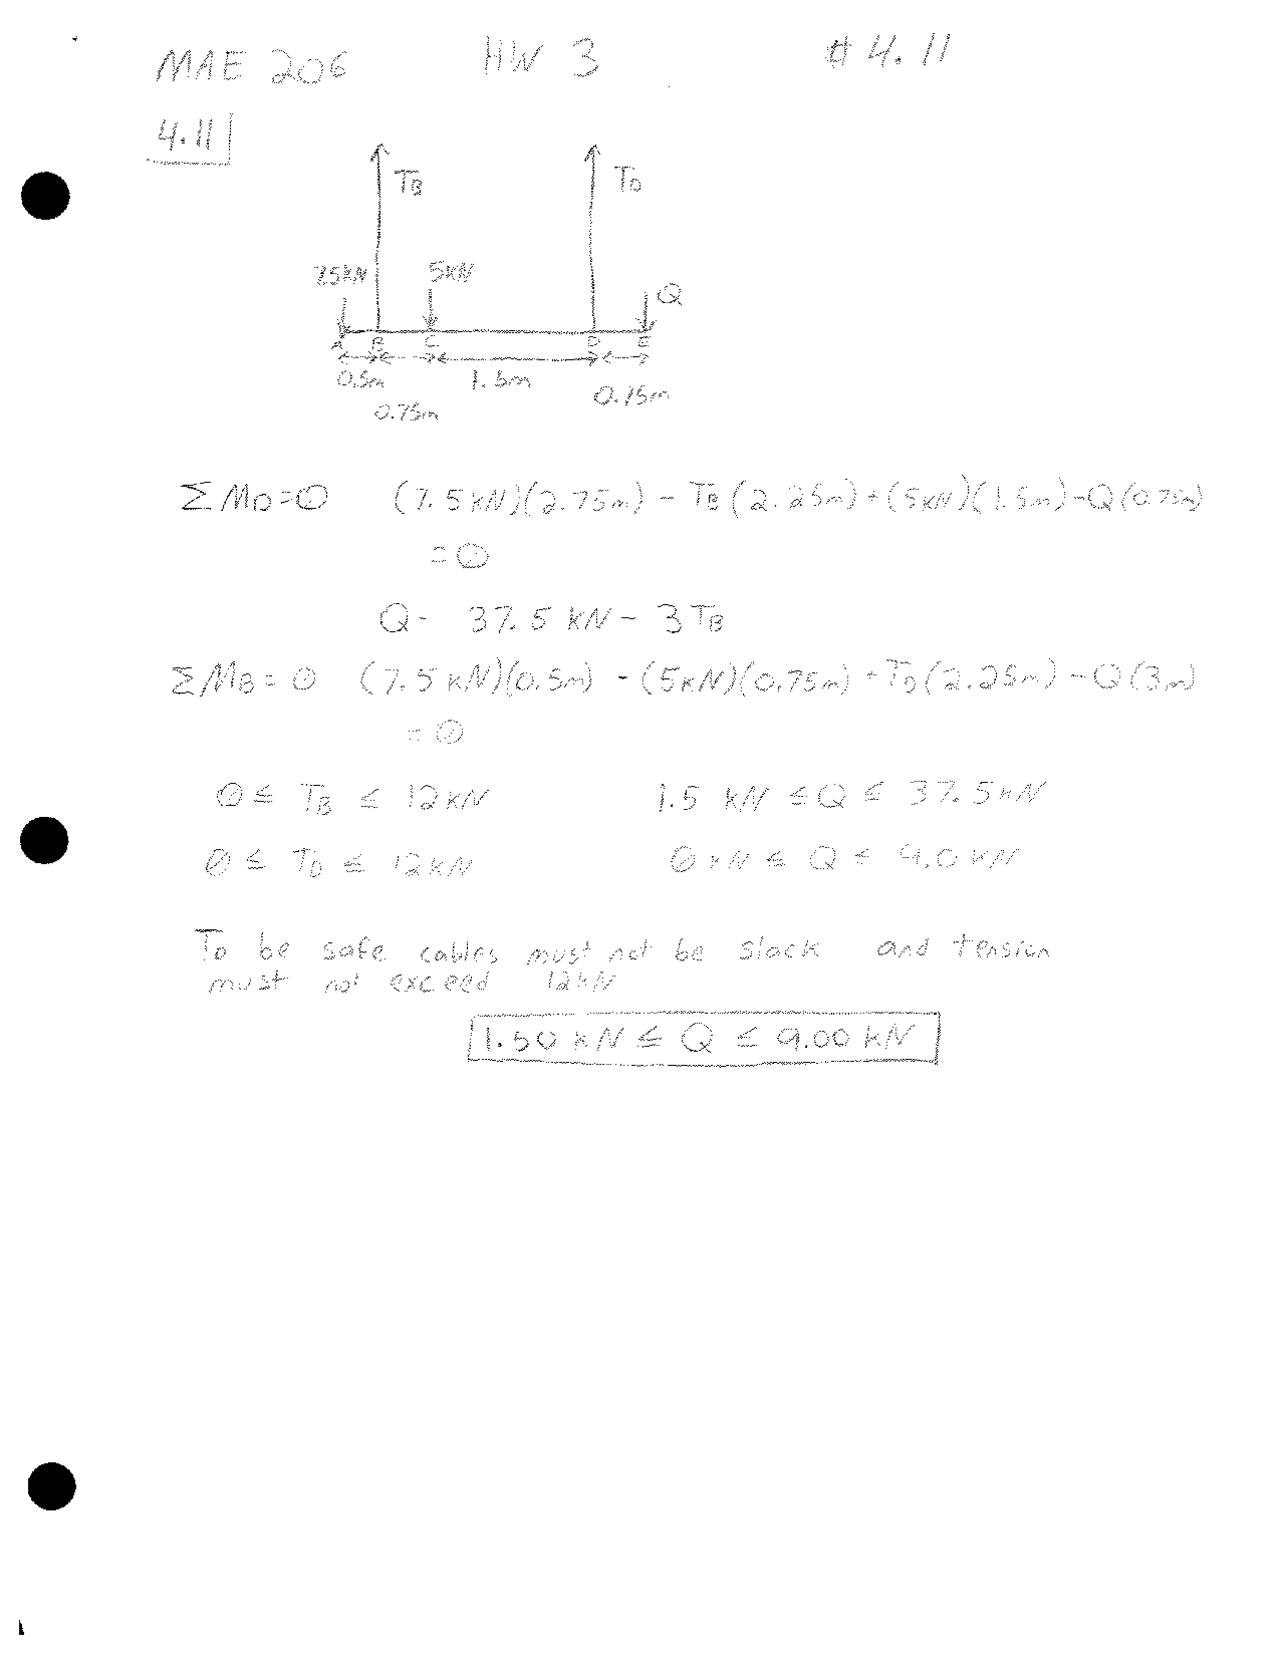 MAE 206 HW 3 # 4.11
4.11
TB TD
7.5kN 5kN Q
A B C D E
0.5m 1.5m 0.75m
0.75m
ΣMD=0 (7.5kN)(2.75m) - TB(2.25m)+(5kN)(1.5m)-Q(0.75m)
=0
Q- 37.5 kN - 3TB
ΣMB=0 (7.5kN)(0.5m) - (5kN)(0.75m) + TD(2.25m) - Q(3m)
=0
0 ≤ TB ≤ 12kN 1.5 kN ≤ Q ≤ 37.5kN
0 ≤ TD ≤ 12kN 0 kN ≤ Q ≤ 9.0 kN
To be safe cables must not be slack and tension
must not exceed 12kN
1.50 kN ≤ Q ≤ 9.00 kN